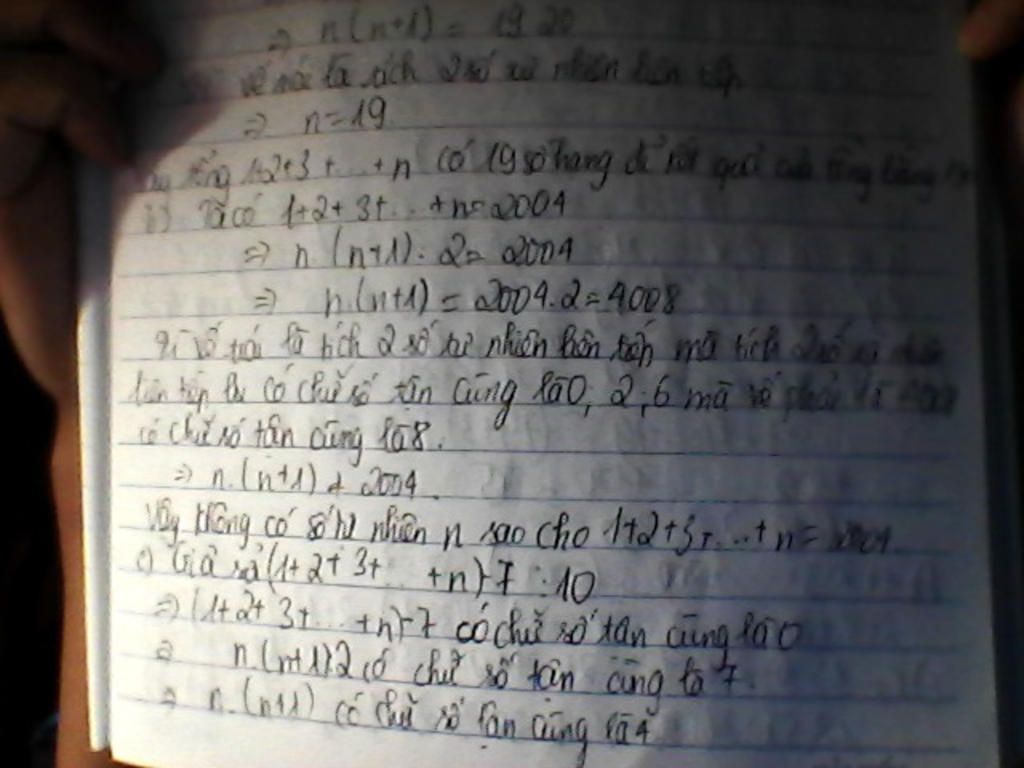 => n(n+1) = 19.20
vế trái là tích 2 số tự nhiên liên tiếp
=> n=19
tổng 1+2+3+...+n có 19 số hạng để kết quả của tổng bằng
b) Ta có 1+2+3+...+n=2004
=> n.(n+1):2=2004
=> n.(n+1)=2004.2=4008
Vì vế trái là tích 2 số tự nhiên liên tiếp mà tích 2 số tự nhiên
liên tiếp có chữ số tận cùng là 0; 2; 6 mà vế phải là 4008
có chữ số tận cùng là 8.
=> n.(n+1) ≠ 2004.
Vậy không có số tự nhiên n sao cho 1+2+3+...+n=2004
c) Giả sử (1+2+3+...+n)-7 ⋮ 10
=> (1+2+3+...+n)-7 có chữ số tận cùng là 0
=> n.(n+1):2 có chữ số tận cùng là 7.
=> n.(n+1) có chữ số tận cùng là 4